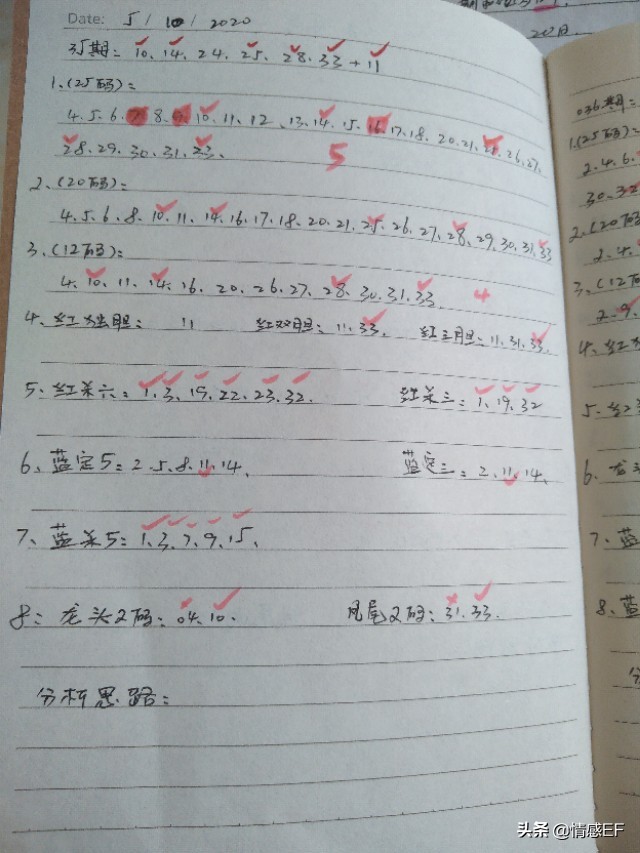 Date: 5 / 10 / 2020
35期: 10、14、24、25、28、33+11
1、(25码):
4、5、6、7、8、9、10、11、12、13、14、15、16、17、18、20、21、25、26、27、
28、29、30、31、33、
5
2、(20码):
4、5、6、8、10、11、14、16、17、18、20、21、25、26、27、28、29、30、31、33
3、(12码):
4、10、11、14、16、20、26、27、28、30、31、33、 4
4、红独胆: 11 红双胆: 11、33、 红三胆: 11、31、33、
5、红杀六: 1、3、19、22、23、32、 红杀三: 1、19、32
6、蓝定5: 2、5、8、11、14、 蓝定三: 2、11、14、
7、蓝杀5: 1、3、7、9、15、
8: 龙头2码: 04、10、 凤尾2码: 31、33、
分析思路:
036期:
1、(25码):
2、4、6、
30、32
2、(20码
2、4、
3、(12码
2、9、
4、红
5、红
6、
7、蓝
8、蓝
头条 @情感EF